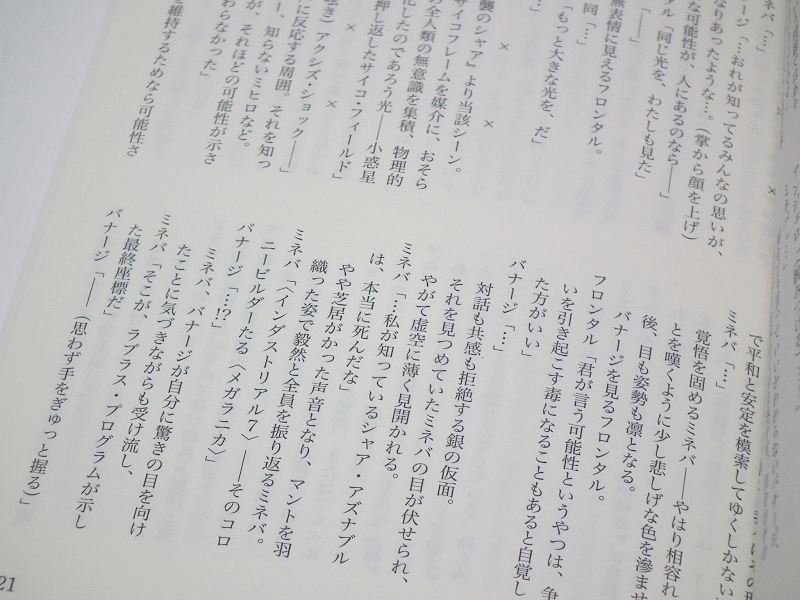 ミネバ「…」
バナージ「…おれが知ってるみんなの思いが、
なりあったような…。(掌から顔を上げ)
な可能性が、人にあるのなら――」
タル「同じ光を、わたしも見た」
「――」
無表情に見えるフロンタル。
同「…」
「もっと大きな光を、だ」
…」
× × ×
襲のシャア』より当該シーン。
サイコフレームを媒介に、おそら
の全人類の無意識を集積、物理的
化したのであろう光――小惑星
押し返したサイコ・フィールド」
呟き)アクシズ・ショック――」
に反応する周囲。それを知っ
ー、知らないミヒロなど。
が、それほどの可能性が示さ
わらなかった」
を維持するためなら可能性さ
で平和と安定を模索してゆくしかない」
ミネバ「…」
覚悟を固めるミネバ――やはり相容れ
とを嘆くように少し悲しげな色を滲ませ
後、目も姿勢も凛となる。
バナージを見るフロンタル。
フロンタル「君が言う可能性というやつは、争
いを引き起こす毒になることもあると自覚し
た方がいい」
バナージ「…」
対話も共感も拒絶する銀の仮面。
それを見つめていたミネバの目が伏せられ、
やがて虚空に薄く見開かれる。
ミネバ「…私が知っているシャア・アズナブル
は、本当に死んだな」
やや芝居がかった声音となり、マントを羽
織った姿で毅然と全員を振り返るミネバ。
ミネバ「〈インダストリアル7〉――そのコロ
ニービルダーたる〈メガラニカ〉」
バナージ「…!?」
ミネバ、バナージが自分に驚きの目を向け
たことに気づきながらも受け流し、
ミネバ「そこが、ラプラス・プログラムが示し
た最終座標だ」
バナージ「――(思わず手をぎゅっと握る)」
21